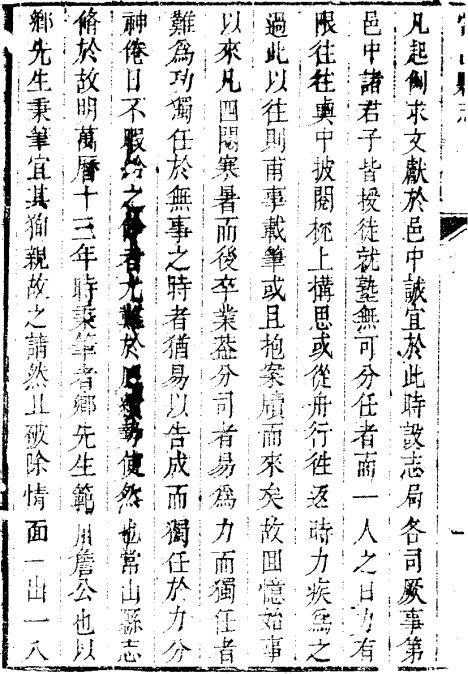 常山縣志
凡起例求文獻於邑中誠宜於此時設志局各司厥事第
邑中諸君子皆授徒就塾無可分任者而一人之日力有
限往往輿中披閱枕上搆思或從舟行徃返時力疾爲之
過此以往則甫事載筆或且抱案牘而來矣故囬憶始事
以來凡四閱寒暑而後卒業葢分司者易爲力而獨任者
難爲功獨任於無事之時者猶易以告成而獨任於力分
神倦日不暇給之際者尤難於勢使然也常山縣志
脩於故明萬曆十三年時秉筆者鄉先生範川詹公也以
鄉先生秉筆宜其狥親故之請然且破除情面一出一入